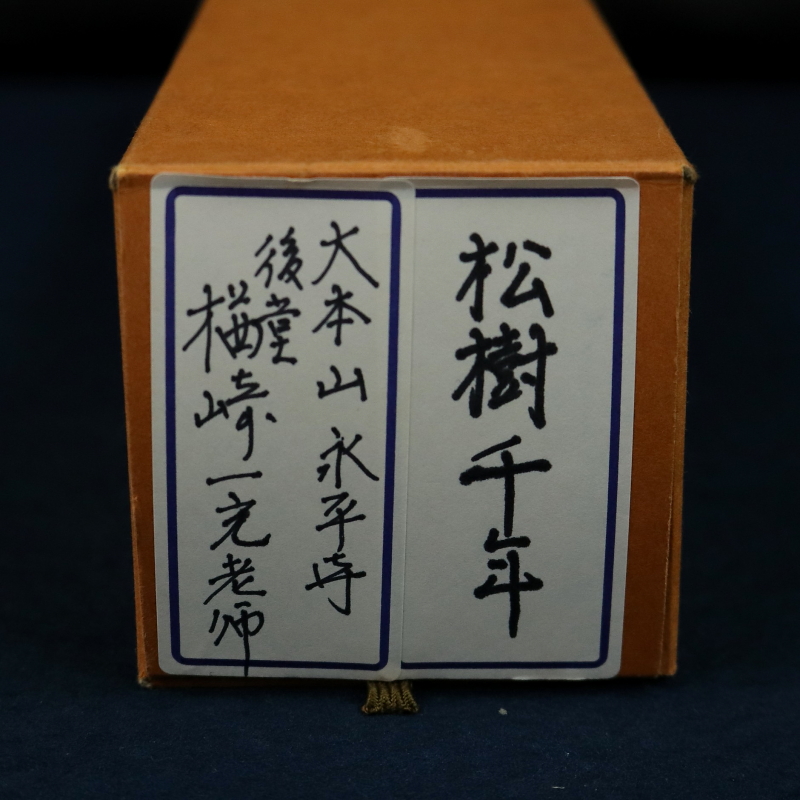 松樹千年
大本山永平寺
後堂
楢崎一光老師